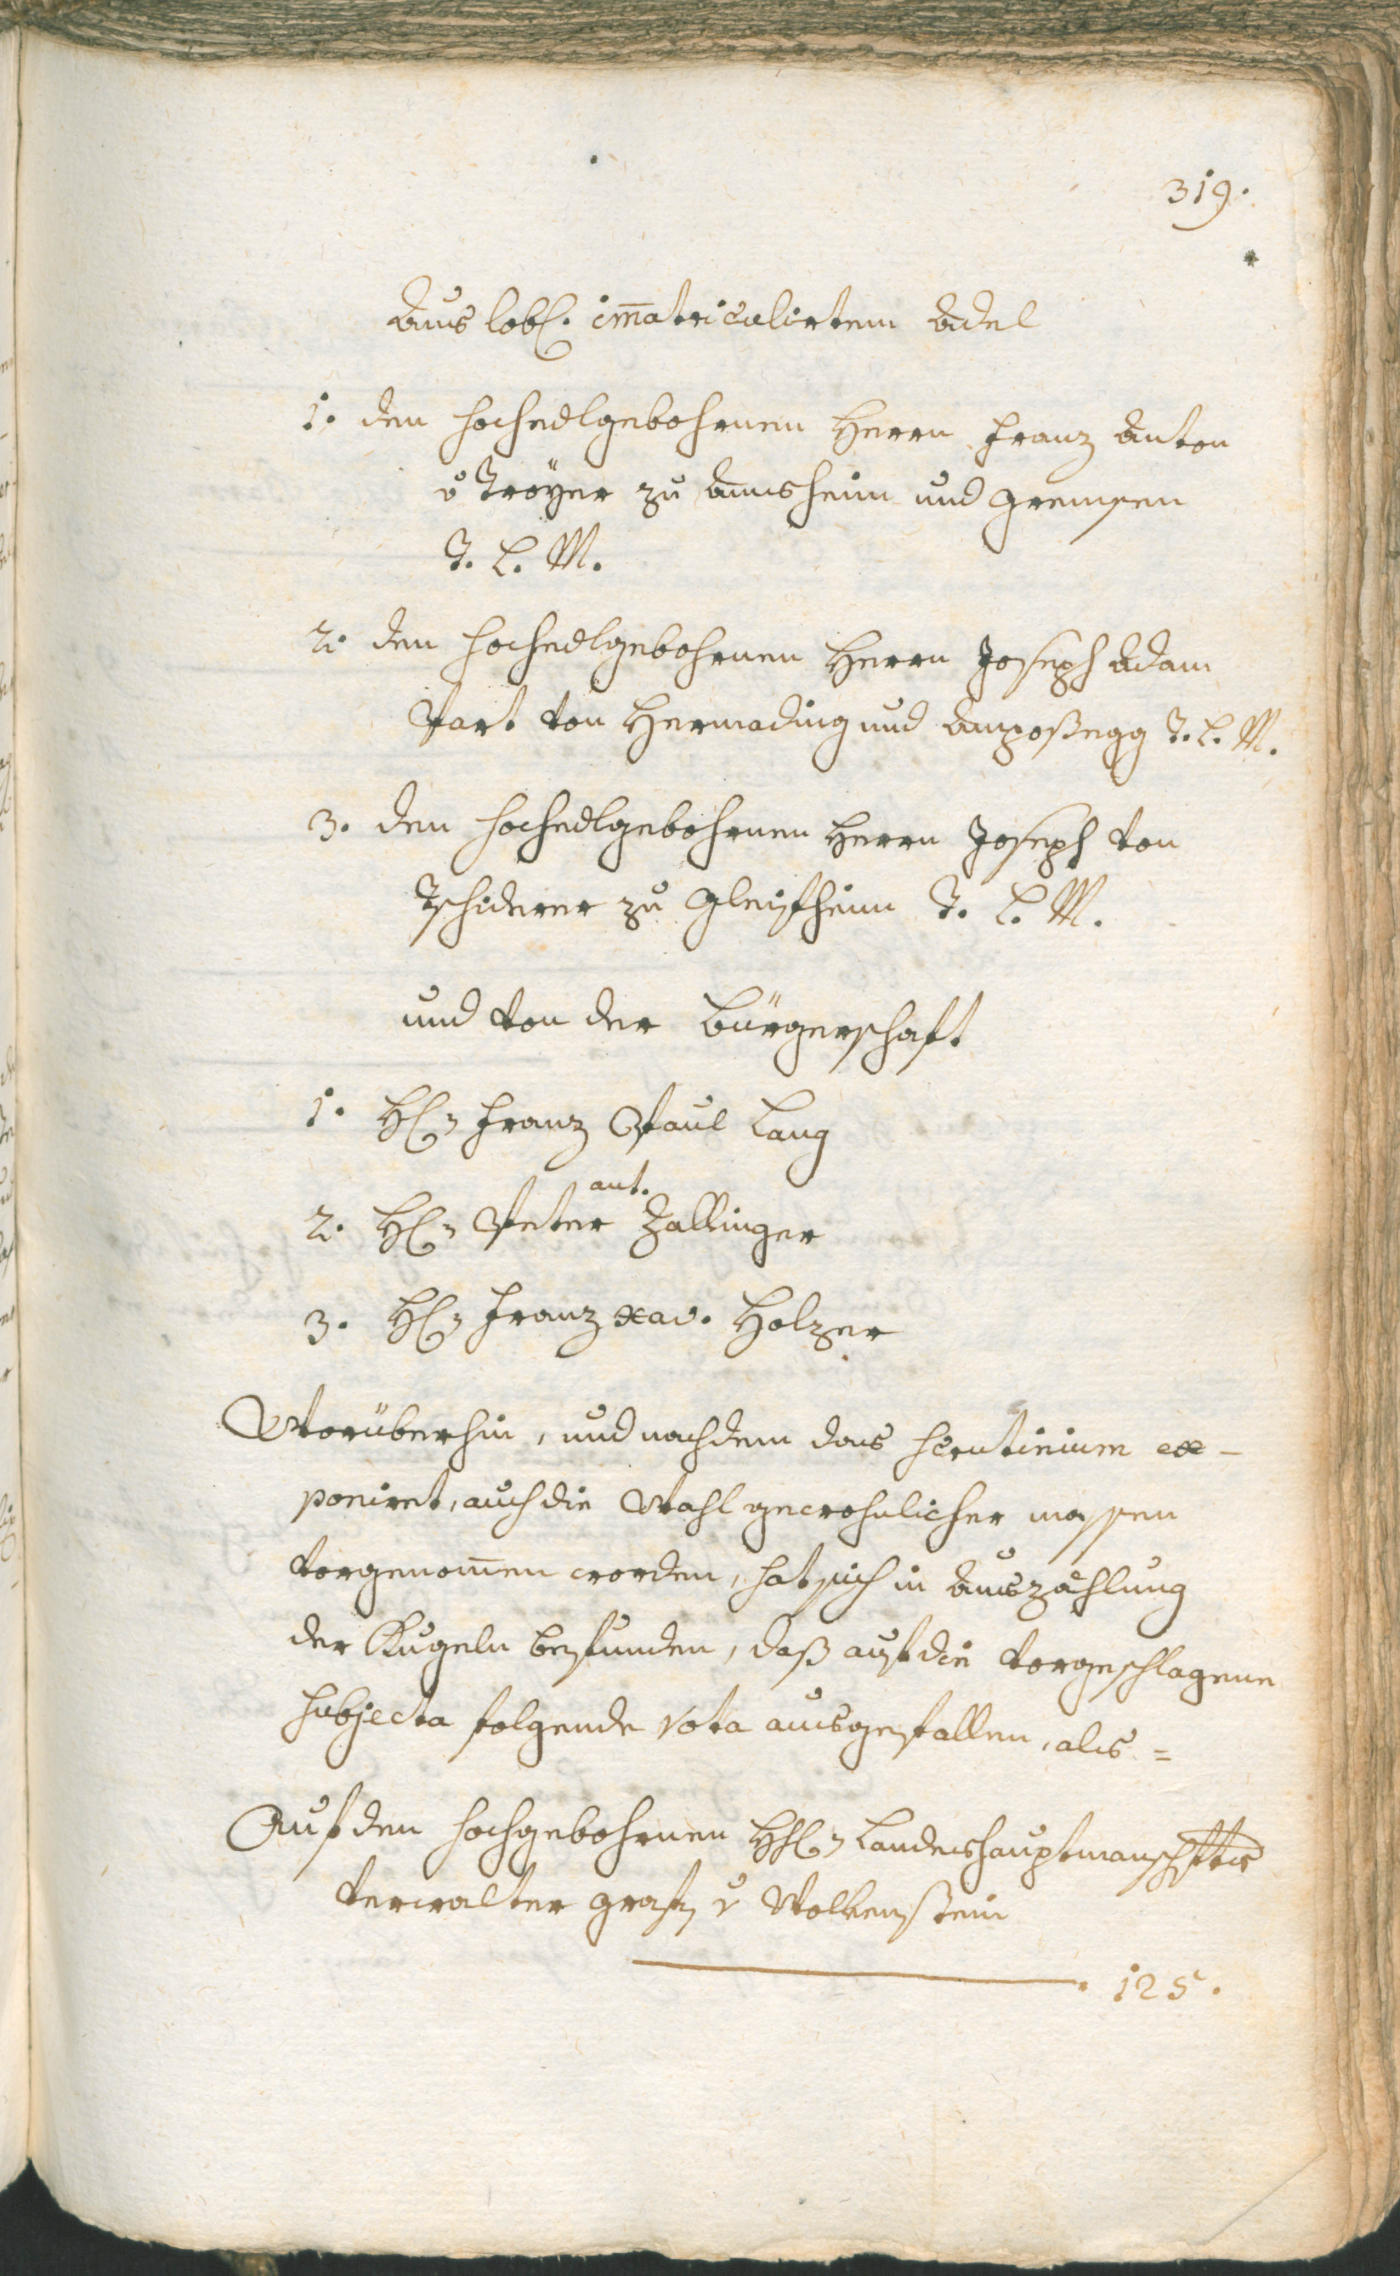 319.
Aus lobl. im̅atriculirtem Adel
1. den hochedlgebohrnen Herrn Franz Anton
v Troÿer zu Aussheim und Greissen
T. L. M.
2. den hochedlgebohrnen Herrn Joseph Adam
von Hermading und T. L. M.
3. den hochedlgebohrnen Herrn Joseph von
Tschiderer zu Gleifheim T. L. M.
und von der Bürgerschaft
1. H. Franz Paul Lang
ant.
2. H. Peter Zallinger
3. H. Franz Xav. Holzer
Worüberhin, und nachdem das scrutinium ex-
poniret, auch die Wahl gewohnlicher massen
vorgenom̅en worden, hat sich in Auszählung
der Kugeln befunden, daß auf die vorgeschlagene
subjecta folgende vota ausgefallen, als =
Auf den hochgebohrnen H. Landeshauptmanschfts
verwalter Grafn v Wolkenstein
125.